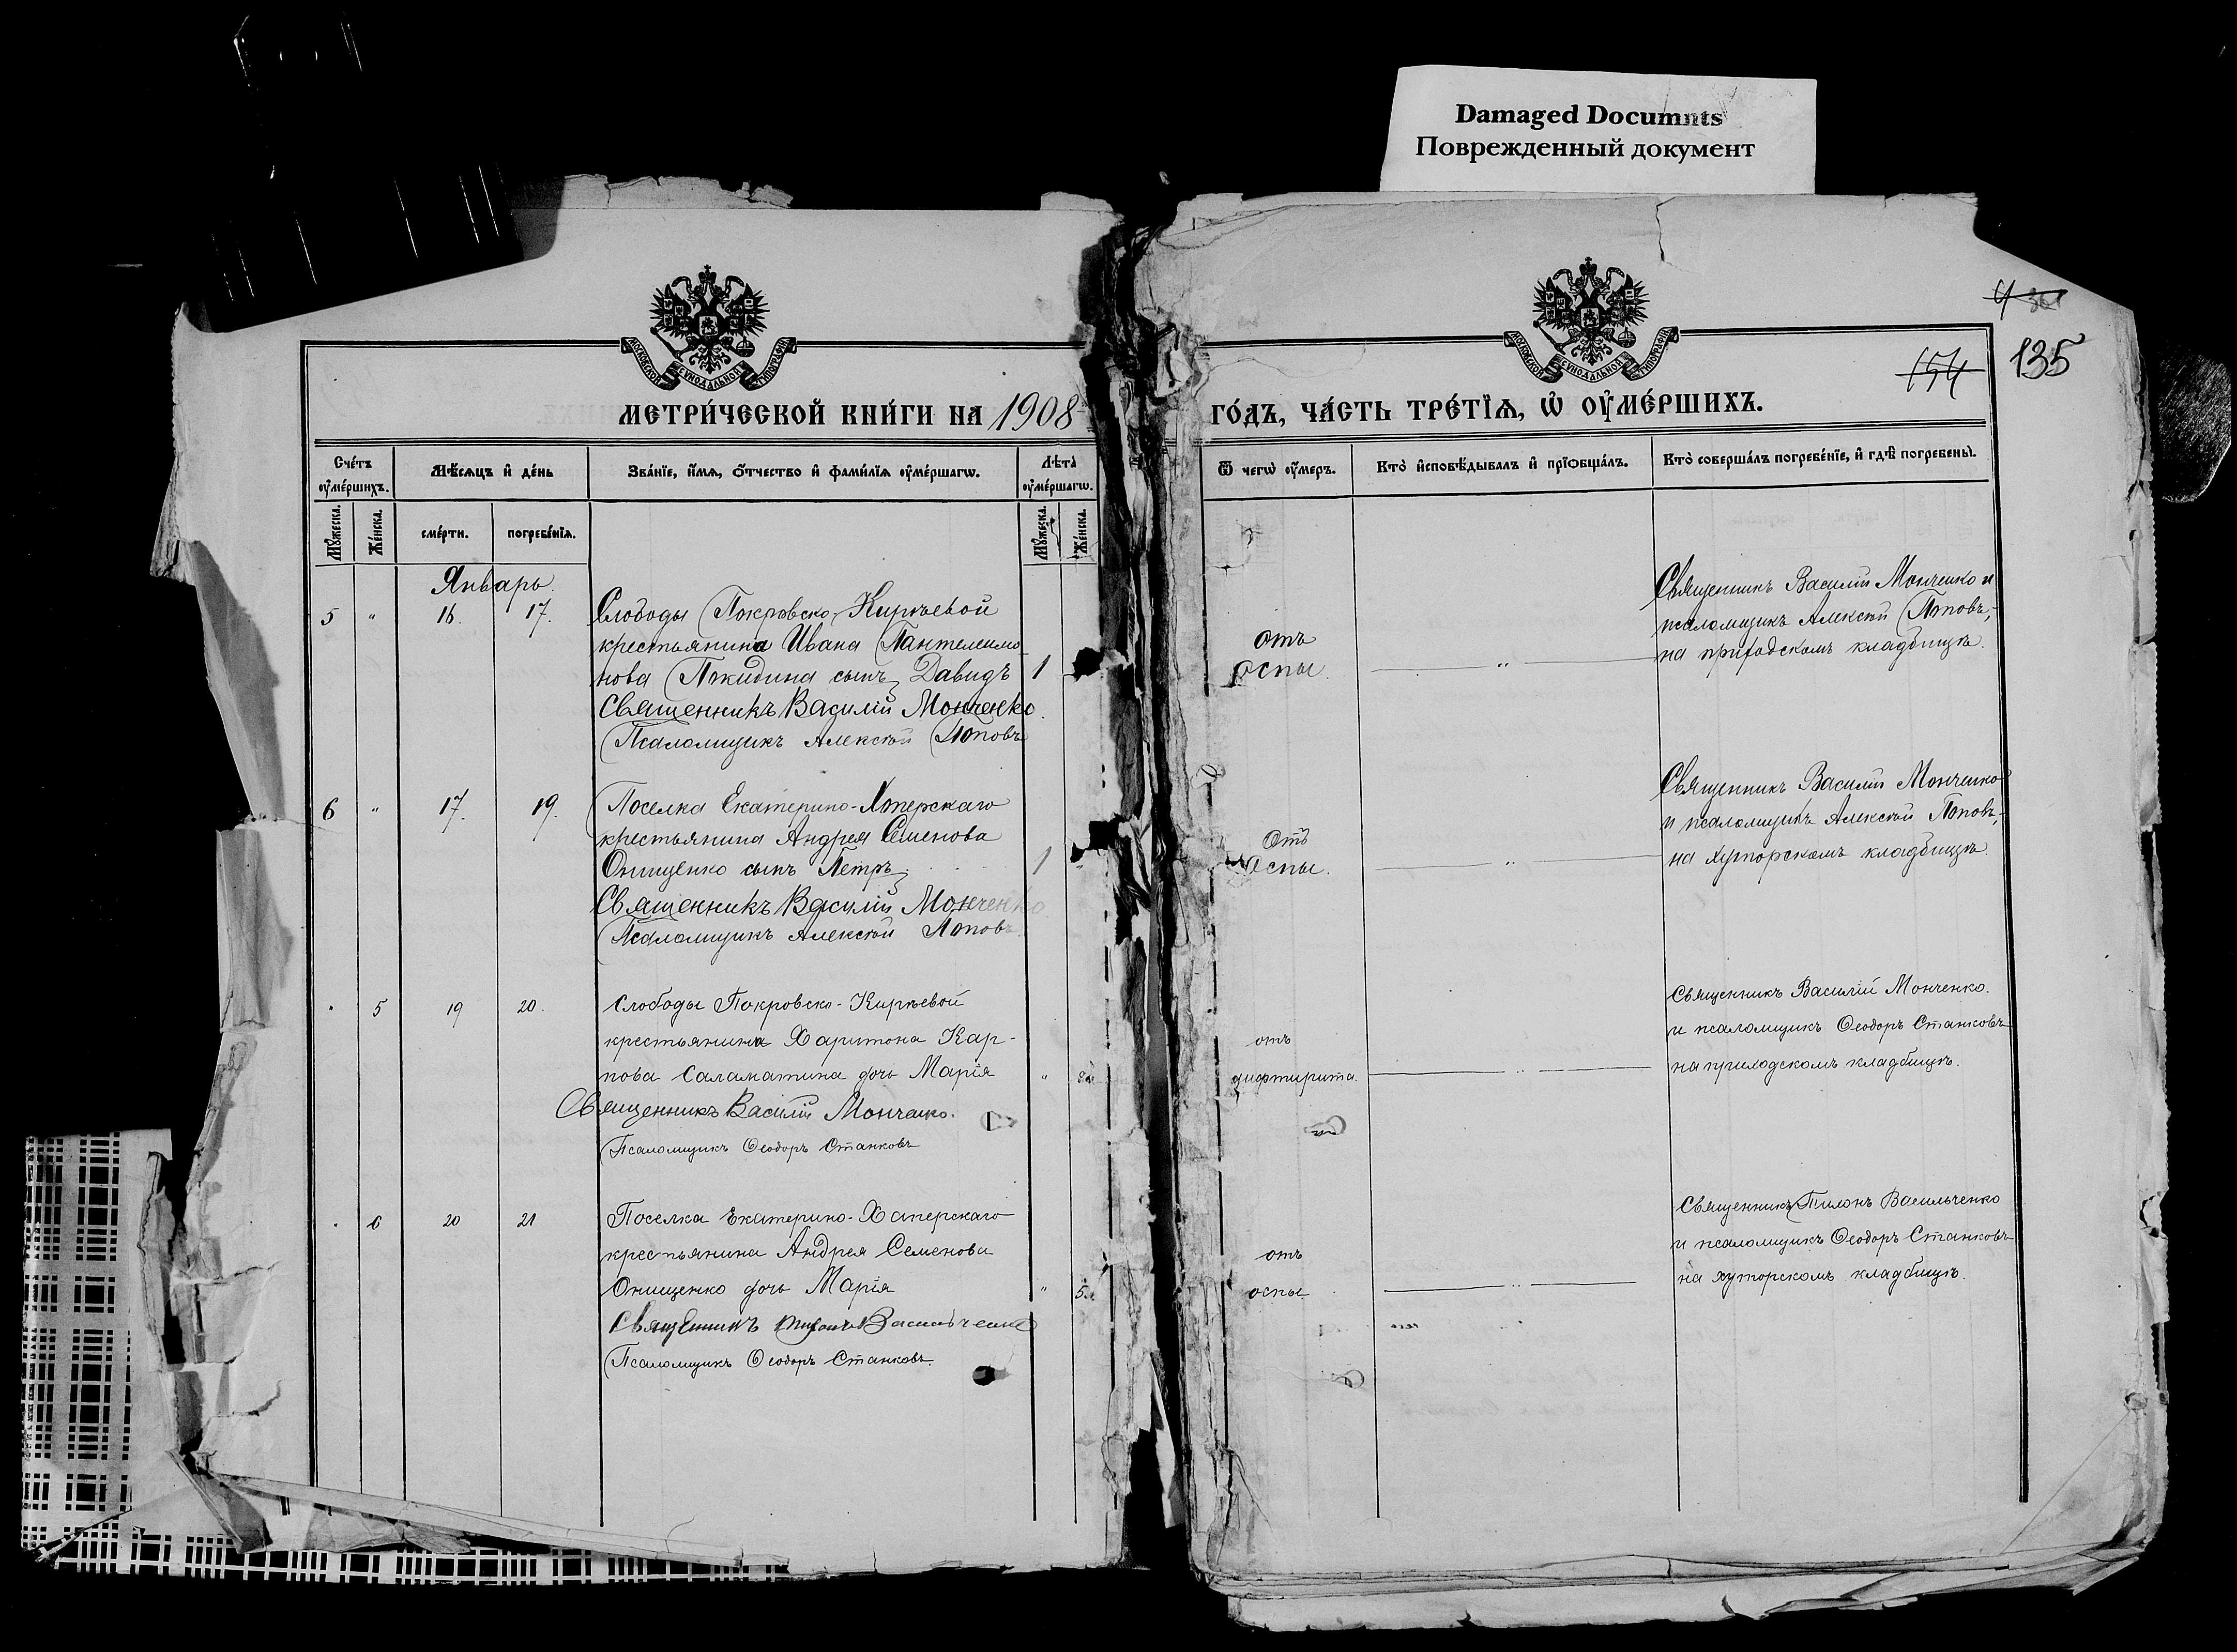 Damaged Documnts
Поврежденный документ
МОСКОВСКОЙ СѴНОДАЛЬНОЙ ТИПОГРАФІИ
МОСКОВСКОЙ СѴНОДАЛЬНОЙ ТИПОГРАФІИ
154
135
МЕТРИ́ЧЕСКОЙ КНИ́ГИ НА 1908
ГО́ДЪ, ЧА́СТЬ ТРЕ́ТІѦ, Ѡ҆ ОУ҆МЕ́РШИХЪ.
Сче́тъ оу҆ме́ршихъ.
Мѣ́сѧцъ и҆ де́нь
Зва́нїе, и҆́мѧ, ѻ҆́тчество и҆ фами́лїѧ оу҆ме́ршагѡ.
Лѣ̀та оу҆ме́ршагѡ.
Ѿ чегѡ̀ оу҆́меръ.
Кто̀ и҆сповѣ́дывалъ и҆ прїѻбща́лъ.
Кто̀ соверша́лъ погребе́нїе, и҆ гдѣ̀ погребены̀.
Мꙋ́жеска.
Же́нска.
сме́рти.
погребе́нїѧ.
Мꙋ́жеска.
Же́нска.
Январь.
5 " 16. 17. Слободы Покровско-Киреевой
крестьянина Ивана Пантелеимо
нова Покидина сынъ Давидъ 1
Священникъ Василій Монченко.
Псаломщикъ Алексѣй Поповъ
отъ
оспы. "
Священникъ Василій Монченко и
псаломщикъ Алексѣй Поповъ,
на приходскомъ кладбищѣ.
6 " 17. 19. Поселка Екатерино-Хоперскаго
крестьянина Андрея Семенова
Онищенко сынъ Петръ 1 "
Священникъ Василій Монченко
Псаломщикъ Алексѣй Поповъ
Отъ
оспы. "
Священникъ Василій Монченко
и псаломщикъ Алексѣй Поповъ,
на хуторскомъ кладбищѣ.
" 5 19 20. Слободы Покровско-Киреевой
крестьянина Харитона Кар-
пова Саламатина дочь Марія "
Священникъ Василій Монченко.
Псаломщикъ Ѳеодоръ Станковъ
отъ
дифтирита. "
Священникъ Василій Монченко.
и псаломщикъ Ѳеодоръ Станковъ
на приходскомъ кладбищѣ.
" 6 20 21 Поселка Екатерино-Хоперскаго
крестьянина Андрея Семенова
Онищенко дочь Марія "
Священникъ Васильченко
Псаломщикъ Ѳеодоръ Станковъ.
отъ
оспы "
Священникъ Васильченко
и псаломщикъ Ѳеодоръ Станковъ
на хуторскомъ кладбищѣ.